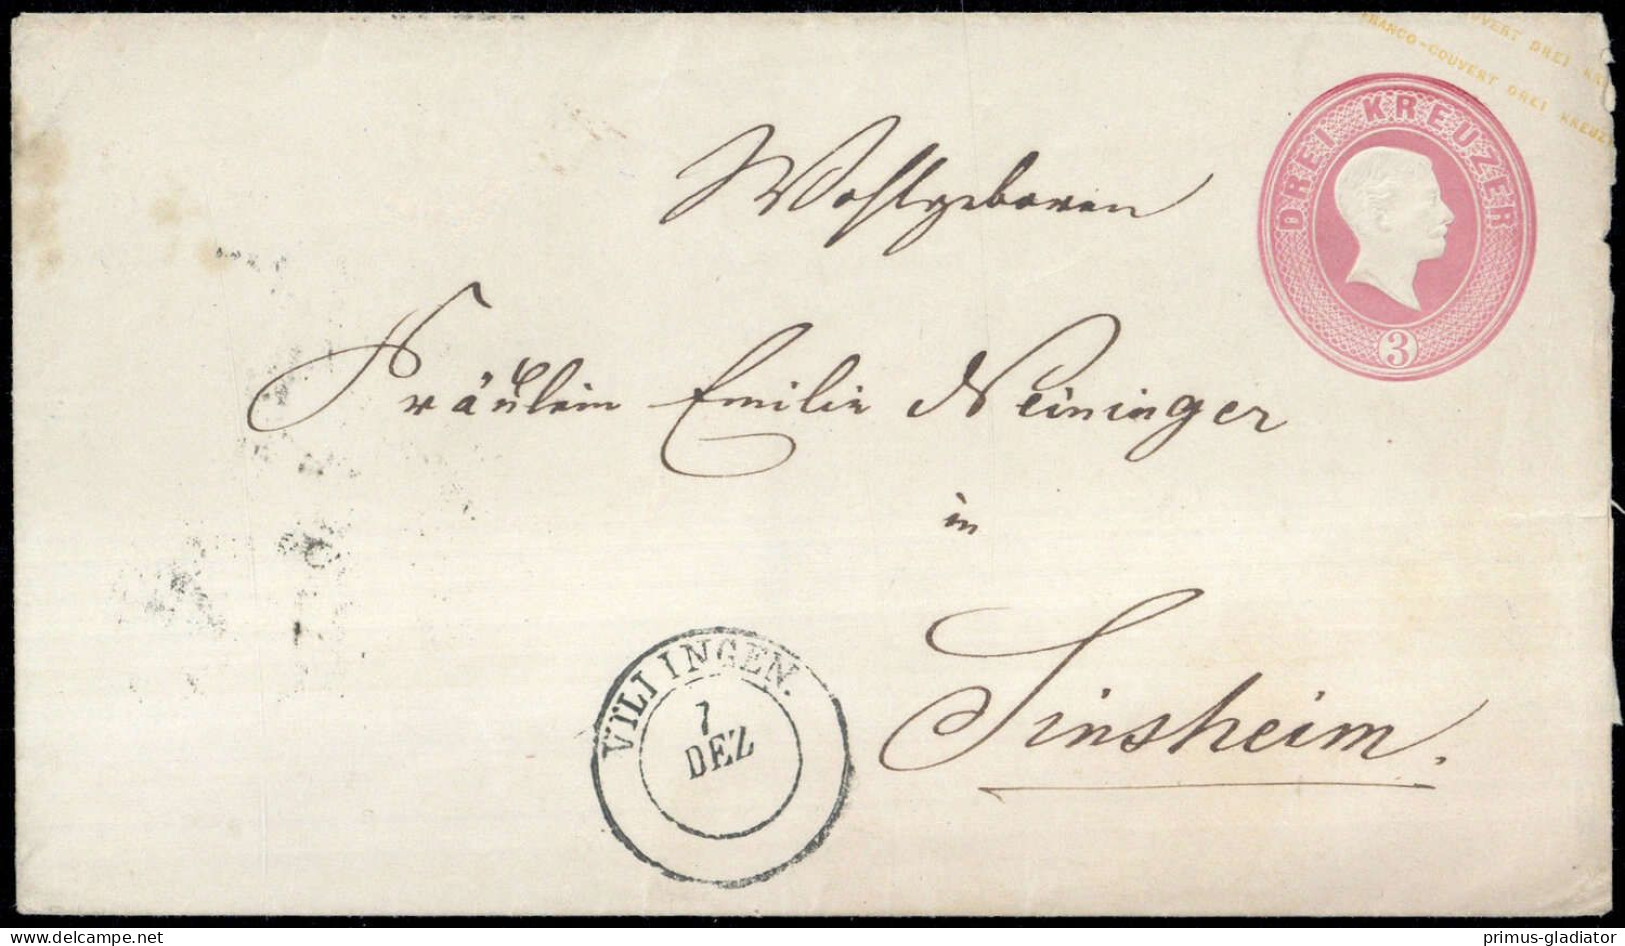 COUVERT DREI KR
FRANCO-COUVERT DREI KREUZE
DREI KREUZER
3
Wohlgeboren
Fräulein Emilie Neininger
in
Sinsheim.
VILLINGEN.
7
DEZ
www.delcampe.net
primus-gladiator